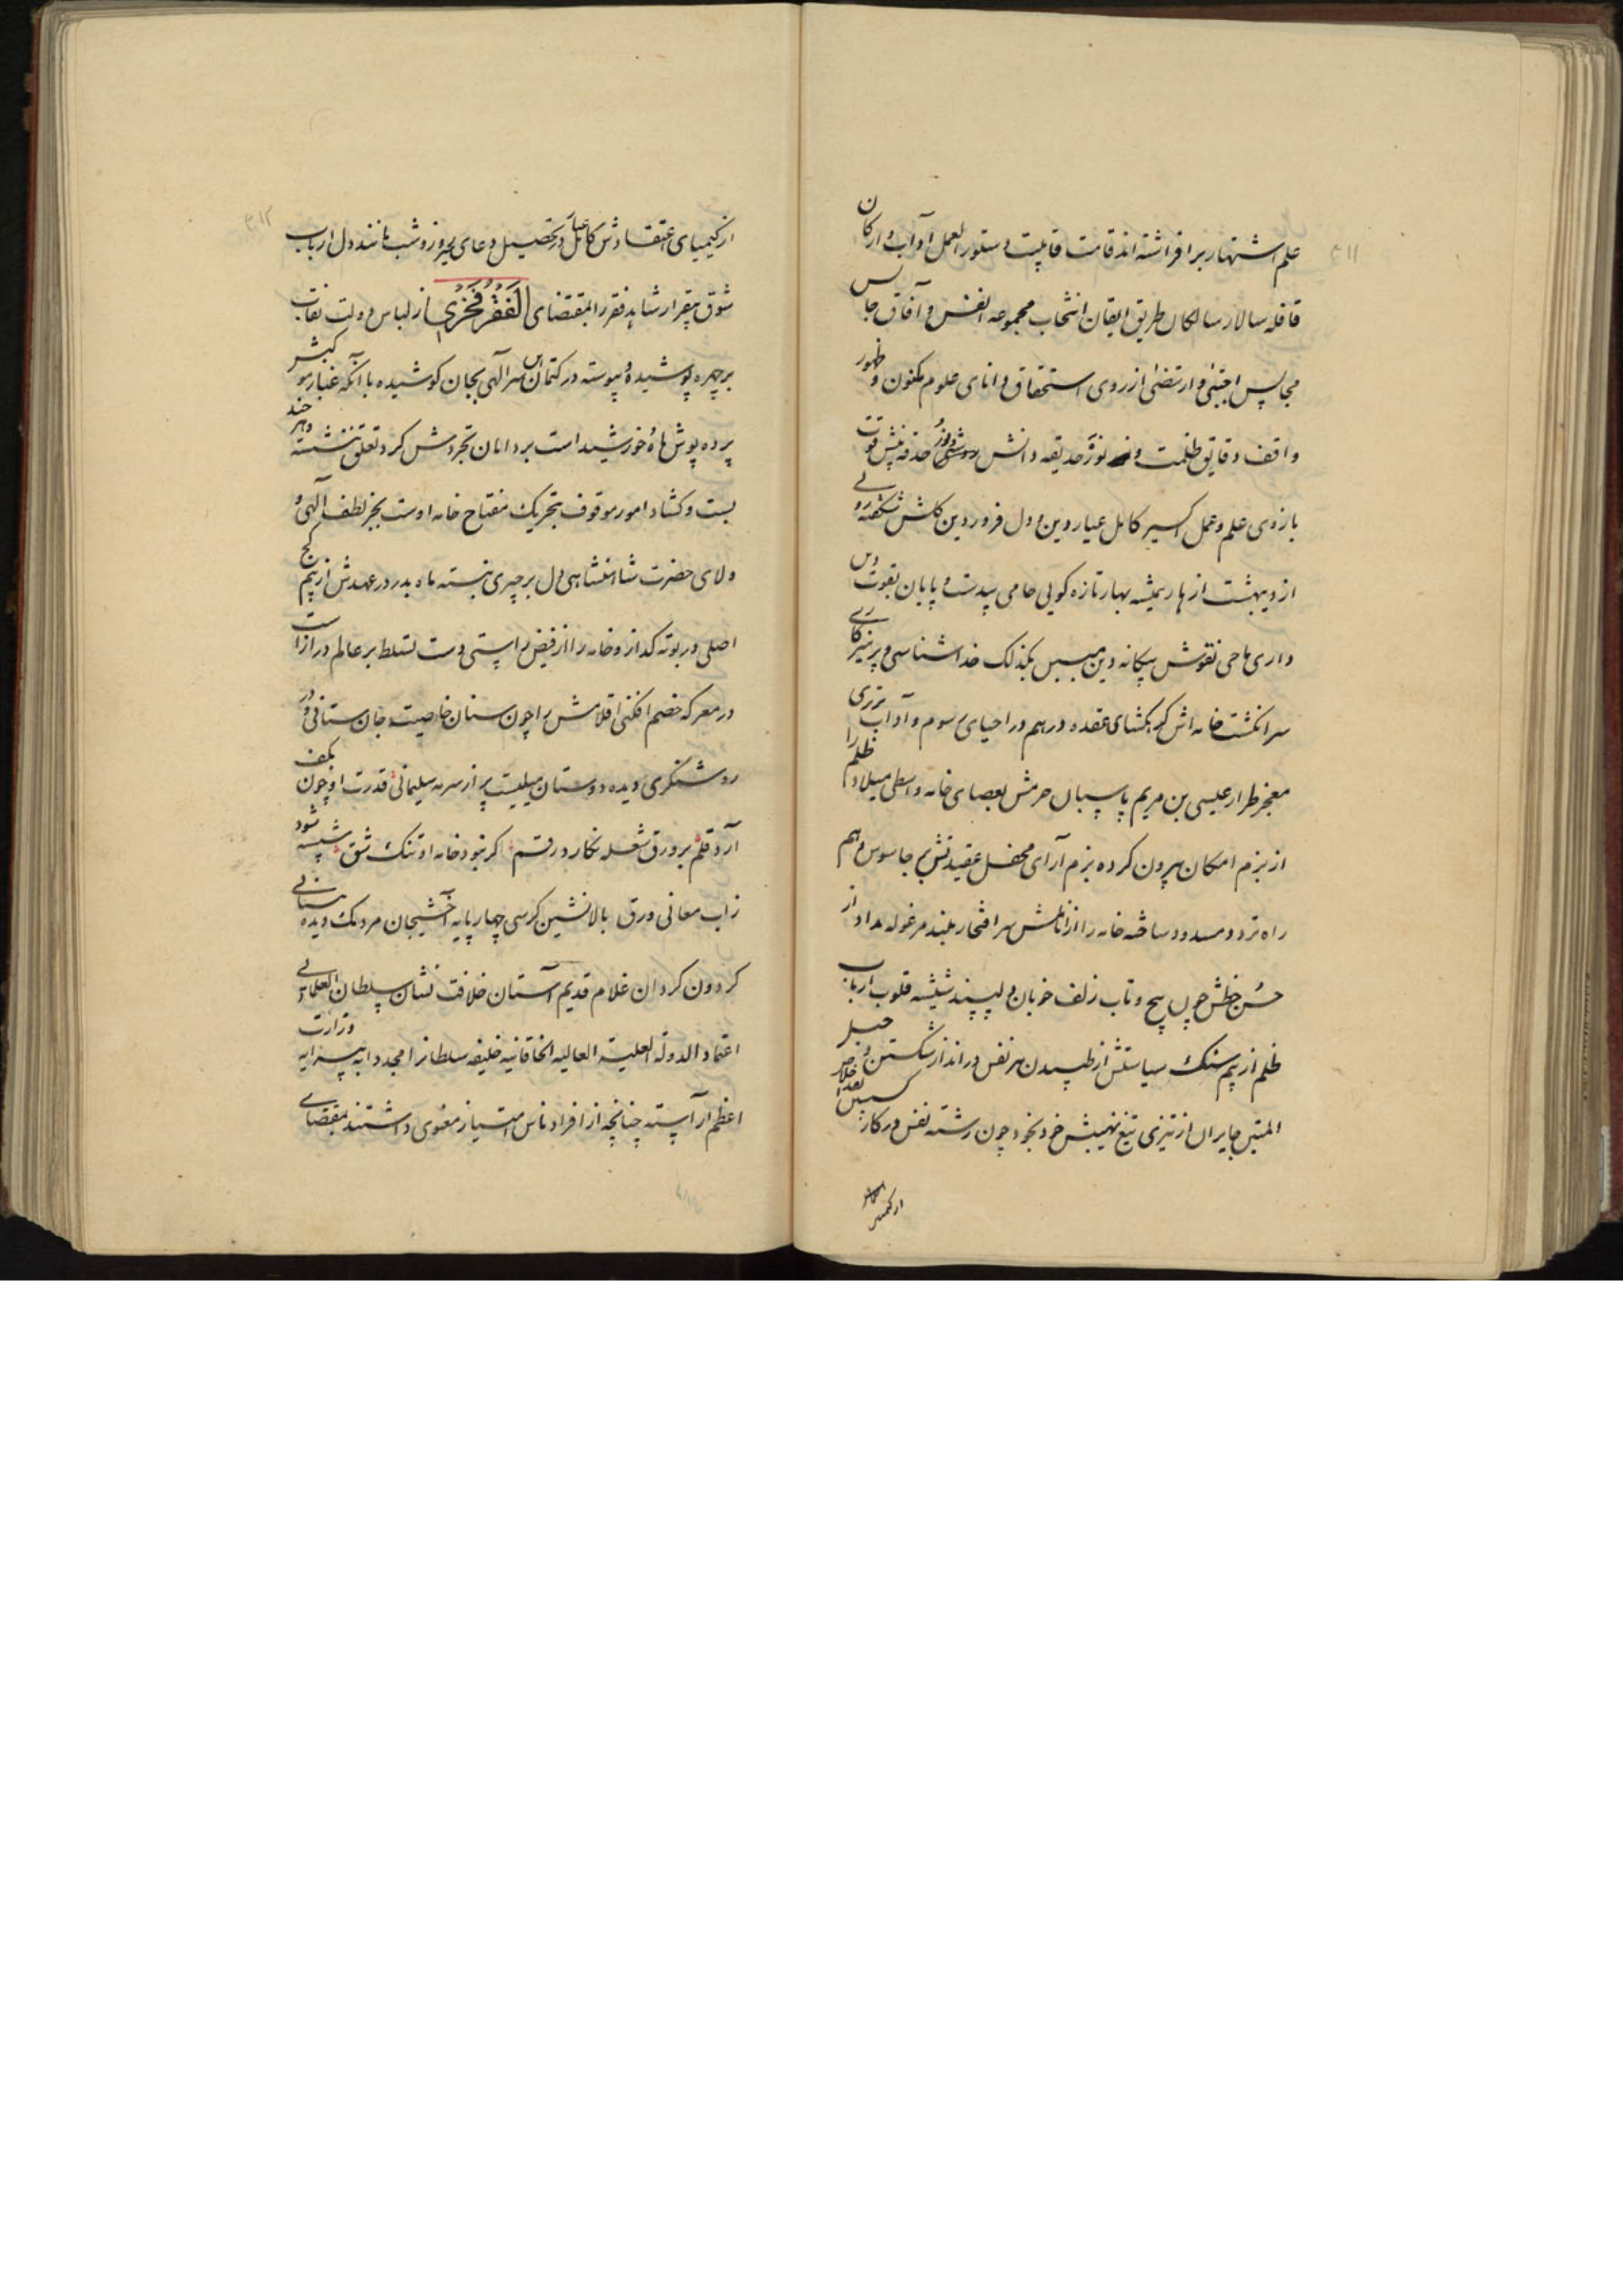 علم اشتهار برافراشته اند قامت قابلیت دستور العمل آداب و ارکان
قافله سالار سالکان طریق ایقان انتخاب مجموعه انفس و آفاق جالس
مجالس اجتبی و ارتضی از روی استحقاق دانای علوم مکنون و ظهور
واقف دقایق ظلمت و نور حدیقه دانش حدقه بینش قوت
بازوی علم و عمل اکسیر کامل عیار دین و دل فروردین گلشن شکفته رویی
اردیبهشت ازهار همیشه بهار تازه گویی حامی بیدست و پایان بقوت دین
داری ماحی نقوش بیگانه دین مبین بکزلک خداشناسی و پرهیزکاری
سرانگشت خامه اش گره گشای عقده درهم در احیای رسوم و آداب برتری
معجز طراز عیسی بن مریم پاسبان حرمش بعصای خامه واسطی میلاد ظلم را
از بزم امکان بیرون کرده بزم آرای محفل عقیدتش بر جاسوس وهم
راه تردد مسدود ساخته خامه را از اناملش سر افتخار بلند مرغوله مداد از
حسن خطش چون پیچ و تاب زلف خوبان دلپسند شیشه قلوب ارباب
ظلم از بیم سنگ سیاستش از طپیدن هر نفس در انداز شکستن و حبل
المتین جابران از تیزی تیغ نهیبش خود بخود چون رشته نفس در کار
۳۱۱
از کیمیای اعتقادش کامل عیار در تحصیل دعای خیر روز و شب مانند دل ارباب
شوق بیقرار شاهد فقر را بمقتضای الفقر فخری از لباس دولت نقاب
بر چهره پوشیده و پیوسته در کتمان سر الهی بجان کوشیده با آنکه غبار موکبش
پرده پوش ماه و خورشید است بر دامان تجردش گرد تعلق ننشسته و هر چند
بست و گشاد امور موقوف بتحریک مفتاح خامه اوست بجز لطف الهی و
ولای حضرت شاهنشاهی دل بر چیزی نبسته ماه بدر در عهدش از بیم کج
اصلی در بوته گداز و خامه را از فیض راستی دست تسلط بر عالم دراز است
در معرکه خصم افکنی اقلامش را چون سنان خاصیت جان ستانی و در
روشنگری دیده دوستان میلیست پر از سرمه سلیمانی قدرت او چون بکف
آرد قلم بر ورق شعله نگارد رقم گر نبود خامه او تنگ شق شسته شود
ز آب معانی ورق بالانشین کرسی چهار پایه آخشیجان مردمک دیده
گردون گردان غلام قدیم آستان خلافت نشان سلطان العلمائی
اعتماد الدولة العلیة العالیة الخاقانیه خلیفه سلطانرا امجدا به پیرایه وزارت
اعظم آراسته چنانچه از افراد ناس امتیاز معنوی داشتند بمقتضای
۳۱۲